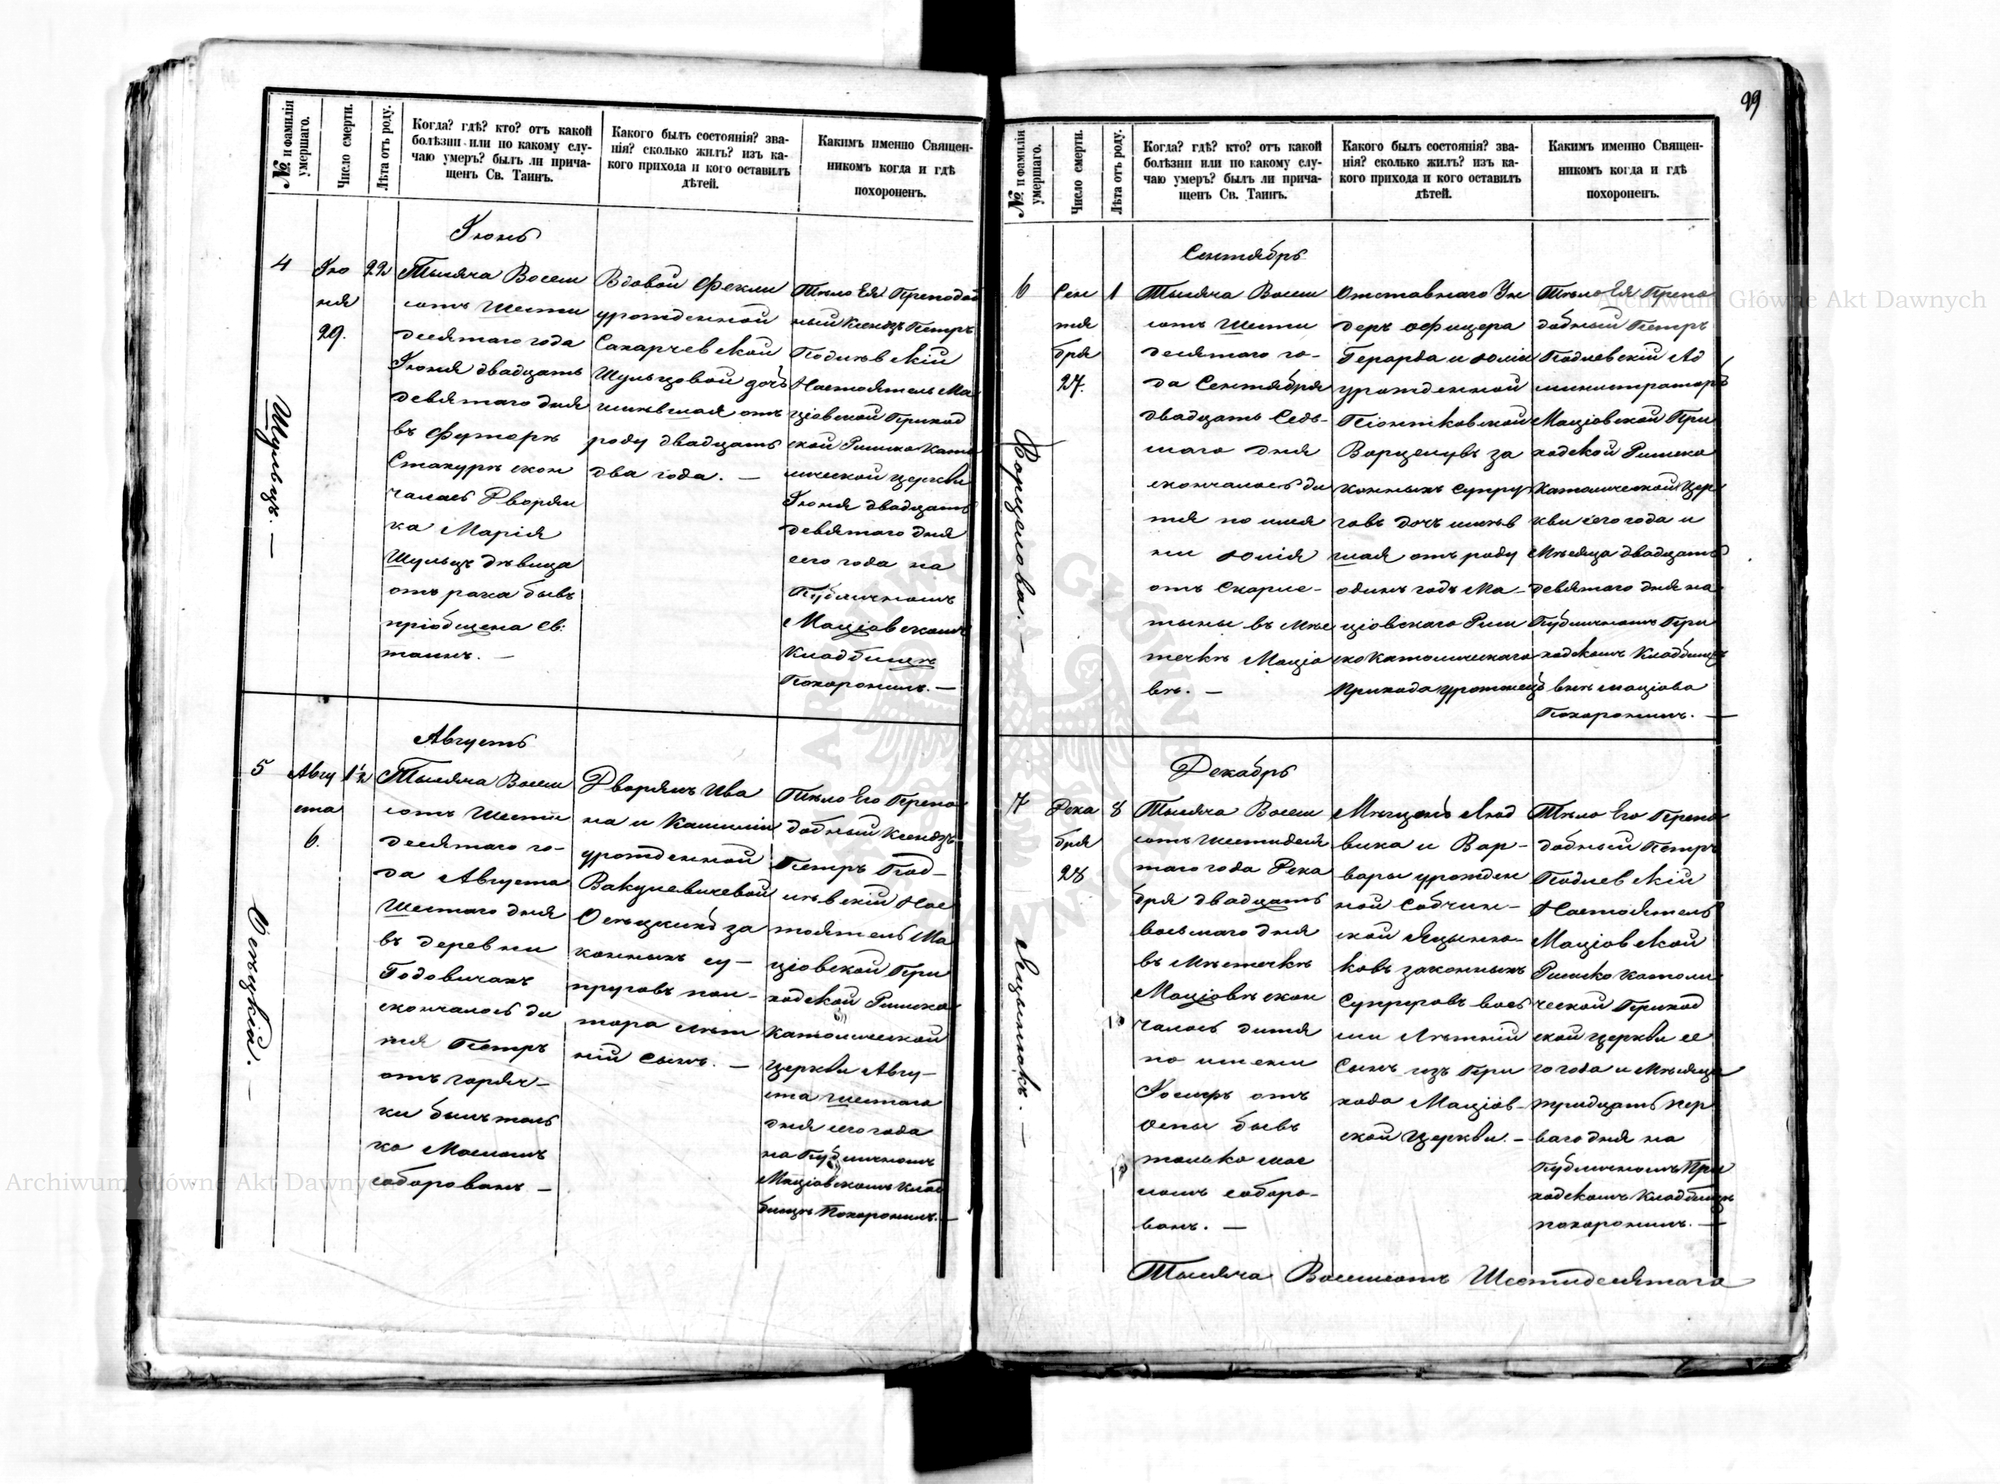 99
№ и фамилія умершаго.
Число смерти.
Лѣта отъ роду.
Когда? гдѣ? кто? отъ какой
болѣзни или по какому слу-
чаю умеръ? былъ ли прича-
щенъ Св. Таинъ.
Какого былъ состоянія? зва-
нія? сколько жилъ? изъ ка-
кого прихода и кого оставилъ
дѣтей.
Каким именно Священ-
никомъ когда и гдѣ
похороненъ.
Іюнь
4
Шульцъ. —
Ію
ня
29.
22
Тысяча Восем
сотъ Шести
десятаго года
Іюня двадцать
девятаго дня
въ Футорѣ
Стахурѣ скон
чалась Дворян
ка Марія
Шульцъ дѣвица
отъ рака бывъ
пріобщена Св:
таинъ. —
Вдовой Феклы
урожденной
Сахарчевской
Шульцовой дочь
имѣвшая отъ
роду двадцать
два года. —
Тѣло Ея Преподоб
ный Ксендзъ Петръ
Подлѣвскій
Настоятель Ма
ціовской Приход
ской Римско Като
лической церкви
Іюня двадцать
девятаго дня
сего года на
Публичномъ
Маціовскомъ
Кладбищѣ
Похоронилъ. —
Августъ
5
Осѣцкій. —
Авгу
ста
6.
1½
Тысяча Восем
сотъ Шести
десятаго го-
да Августа
Шестаго дня
въ деревни
Годовичахъ
скончалось ди
тя Петръ
отъ горяч-
ки былъ толь
ко Масломъ
соборованъ —
Дворянъ Ива
на и Камиліи
урожденной
Вакулевичевой
Осѣцкихъ за
конныхъ су-
пруговъ пол-
тора лѣт
ній сынъ. —
Тѣло Его Препо
добный Ксендзъ
Петръ Под-
лѣвскій Нас
тоятель Ма
ціовской При
ходской Римско
католической
церкви Авгу-
ста шестаго
дня сего года
на Публичномъ
Маціовскомъ Клад
бищѣ Похоронилъ. —
№ и фамилія умершаго.
Число смерти.
Лѣта отъ роду.
Когда? гдѣ? кто? отъ какой
болѣзни или по какому слу-
чаю умеръ? былъ ли прича-
щенъ Св. Таинъ.
Какого былъ состоянія? зва-
нія? сколько жилъ? изъ ка-
кого прихода и кого оставилъ
дѣтей.
Каким именно Священ-
никомъ когда и гдѣ
похороненъ.
Сентябрь
6
Ворцелова. —
Сен
тя
бря
27.
1
Тысяча Восем
сотъ Шести
десятаго го-
да Сентября
двадцать Седь-
маго дня
скончалось ди
тя по имя
ни Юлія
отъ Скарле-
тыны въ мѣс
течкѣ Маціо
вѣ. —
Отставнаго Ун
деръ офицера
Герарда и Юліи
урожденной
Піонтковской
Ворцелувъ за
конныхъ супру
говъ дочь имѣв
шая отъ роду
одинъ годъ Ма-
ціовскаго Рим
скокатолическаго
прихода урожнецъ
Тѣло Ея Препо
добный Петръ
Подлевскій Ад
министраторъ
Маціовской При
ходской Римско
Католической Цер
кви сего года и
Мѣсяца двадцать
девятаго дня на
Публичномъ При
ходскомъ Кладбищѣ
внѣ маціова
Похоронилъ. —
Декабрь
7
Яцынюкъ. —
Дека
бря
28
8
Тысяча Восем
сотъ шестидеся
таго года Дека
бря двадцать
восьмаго дня
въ мѣстечкѣ
Маціовѣ скон
чалось дитя
по имени
Іосифъ отъ
Оспы бывъ
только мас
ломъ соборо-
ванъ. —
Мѣщанъ Люд
вика и Вар-
вары урожден
ной Собчин-
ской Яцыню-
ковъ законныхъ
Супруговъ вось
ми лѣтній
Сынъ изъ При
хода Маціов-
ской Церкви. —
Тѣло Его Препо
добный Петръ
Подлевскій
Настоятель
Маціовской
Римско католи
ческой Приход
ской церкви се
го года и мѣсяца
тридцать пер
ваго дня на
Публичномъ При
ходскомъ Кладбищѣ
похоронилъ. —
Тысяча Восемсотъ Шестидесятаго
Archiwum Główne Akt Dawnych
Archiwum Główne Akt Dawnych